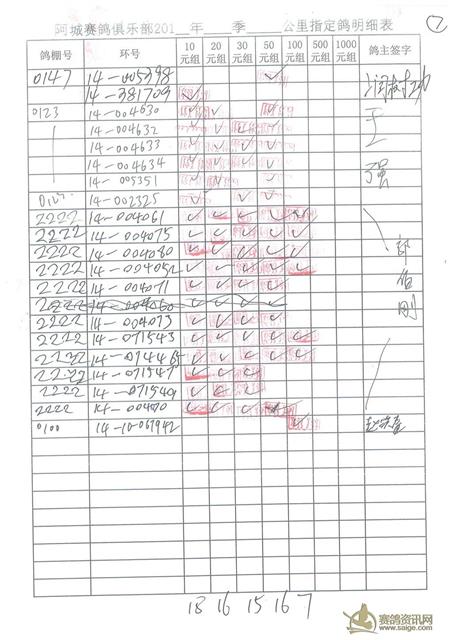 阿城赛鸽俱乐部201__年____季____公里指定鸽明细表
鸽棚号 环号 10元组 20元组 30元组 50元组 100元组 500元组 1000元组 鸽主签字
0147 14-005398 ✓
14-381709 ✓
0123 14-004630 ✓ ✓ ✓ 王
14-004632 ✓ ✓ ✓ ✓
14-004633 ✓ ✓ ✓
14-004634 ✓ ✓ ✓ ✓ 强
14-005351 ✓ ✓ ✓
14-002325 ✓ ✓ ✓
2222 14-004061 ✓ ✓ ✓ ✓ ✓
2222 14-004075 ✓ ✓ ✓ ✓ ✓
2222 14-004080 ✓ ✓ ✓ ✓ ✓
2222 14-00405 ✓ ✓ ✓ ✓ ✓
2222 14-004071 ✓ ✓ ✓ ✓
2222 14-004060 ✓ ✓ ✓ ✓
2222 14-004073 ✓ ✓ ✓ ✓ 刚
2222 14-071543 ✓ ✓ ✓ ✓ ✓
2222 ✓ ✓ ✓ ✓ ✓
2222 14-071547 ✓ ✓ ✓
2222 14-071540 ✓ ✓ ✓
2222 ✓ ✓ ✓ ✓
0100 14-10-067942 ✓
18 16 15 16 7
赛鸽资讯网
www.saige.com